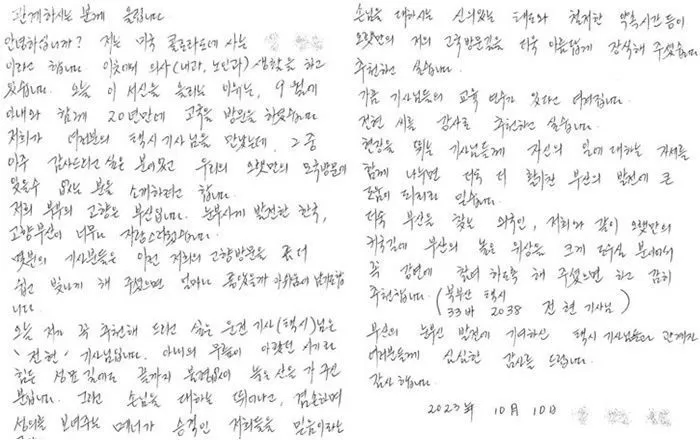 관계하시는 분께 올립니다.
안녕하십니까? 저는 미국 콜로라도에 사는
이라고 합니다. 이곳에서 의사(내과, 노인과) 생활을 하고
있습니다. 오늘 이 서신을 올리는 이유는, 9월에
아내와 함께 20년만에 고국을 방문을 하였습니다.
저희가 여러분의 택시 기사님을 만났는데, 그 중
아주 감사드리고 싶은 분이 있고 우리의 오랫만의 모국방문에
잊을수 없는 분을 소개하려고 합니다.
저희 부부의 고향은 부산입니다. 눈부시게 발전한 한국,
고향 부산이 너무나 자랑스러웠습니다.
몇분의 기사분들은 이런 저희의 고향방문을 좀 더
쉽고 빛나게 해 주셨으면 얼마나 좋았을까 아쉬움이 남기도 합
니다.
오늘 제가 꼭 추천해 드리고 싶은 운전기사(택시)님은
'전현' 기사님입니다. 아내의 무릎이 아팠던 시기라
힘든 성묘 길에도 끝까지 불평없이 높은 산을 가 주신
분입니다. 그리고 손님을 대하는 뛰어나고, 겸손하며
성의를 보여주는 매너가 승객인 저희들을 믿음이라는
손님을 대하시는 신의있는 태도와 철저한 약속시간 등이
오랫만의 저의 고국방문길을 더욱 아름답게 장식해 주셨습니다.
추천하고 싶습니다.
가끔 기사님들의 교육 연수가 있다고 여겨집니다.
전현 씨를 강사로 추천하고 싶습니다.
현장을 뛰는 기사님들께 자신의 일에 대하는 자세를
함께 나누면 더욱 더 활기찬 부산의 발전에 큰
도움이 되리라 믿습니다.
더욱 부산을 찾는 외국인, 저희와 같이 오랫만의
귀국길에 부산의 높은 위상을 크게 높이실 분이어서
꼭 강연에 참여하도록 해 주셨으면 하고 감히
추천합니다. (북부산 택시
33바 2038 전현 기사님)
부산의 눈부신 발전에 기여하신 택시 기사님들과 관계자
여러분들께 심심한 감사를 드립니다.
감사합니다.
2023年 10月 10日